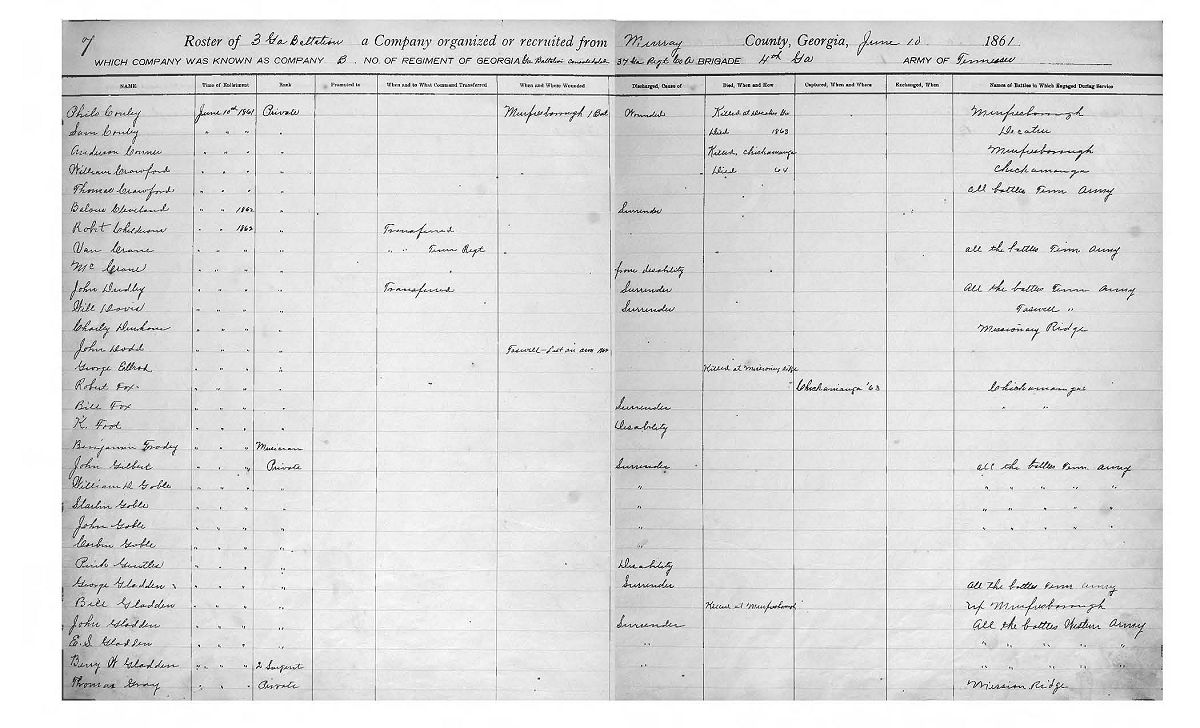 7 Roster of 3 Ga Battalion a Company organized or recruited from Murray County, Georgia, June 10 1861
WHICH COMPANY WAS KNOWN AS COMPANY B. NO. OF REGIMENT OF GEORGIA Ga Battalion Consolidated 37 Ga Regt BRIGADE 4th Ga ARMY OF Tennessee
NAME Time of Enlistment Rank Promoted to When and to What Command Transferred When and Where Wounded Discharged, Cause of Died, When and How Captured, When and Where Exchanged, When Names of Battles in Which Engaged During Service
Philo Conley June 10th 1861 Private Murfreesborough Wounded Killed at Decatur Ga Murfreesborough
Sam Conley " " " " Died 1863 Decatur
Anderson Conner " " " " Killed, Chickamauga Murfreesborough
William Crawford " " " " Died 64 Chickamauga
Thomas Crawford " " " " all battles Tenn Army
Cleveland " " 1862 " Surrender
Robt " " 1862 " Transferred
Van Crane " " " " " " Tenn Regt all the battles Tenn Army
Mc Crane " " " " from disability
John Dudley " " " " Transferred Surrender All the battles Tenn Army
Will Davis " " " " Surrender Taswell "
Charly " " " " Missionary Ridge
John Dodd " " " " Taswell - Lost an arm
George Ellrod " " " " Killed at Missionary Ridge
Robert Fox " " " " Chickamauga '63 Chickamauga
Bill Fox " " " " Surrender " "
K. " " " " Disability
Benjamin " " " Musician
John Gilbert " " " Private Surrender all the battles Tenn Army
William R Goble " " " " " " " " " "
Goble " " " " " " " " " "
John Goble " " " " " " " " " "
Corbin Goble " " " " "
" " " " Disability
George Gladden " " " " Surrender All the battles Tenn Army
Bill Gladden " " " " Killed at Murfreesboro up Murfreesborough
John Gladden " " " " Surrender All the battles Western Army
E.S. Gladden " " " " " " " " " "
W Gladden " " " 2 Sargent " " " " " "
Thomas Gray " " " Private Mission Ridge